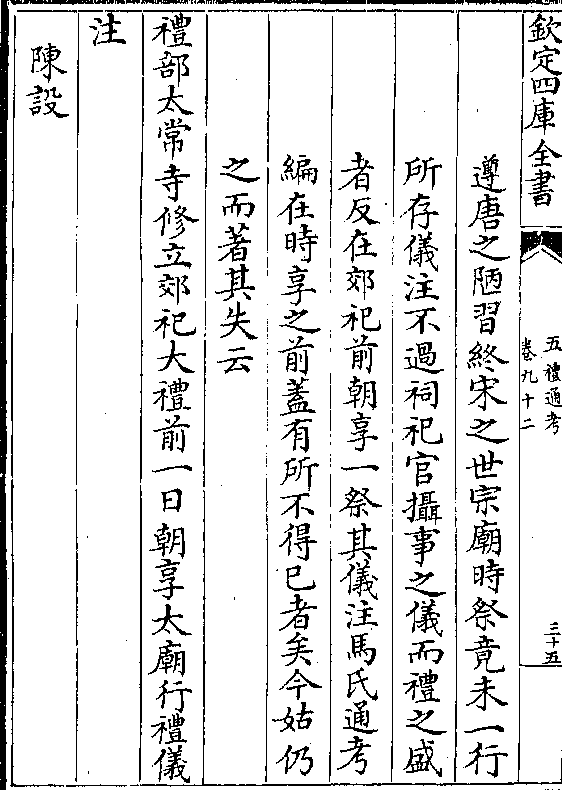 欽定四庫全書
五禮通考
卷九十二
三十五
遵唐之陋習終宋之世宗廟時祭竟未一行
所存儀注不過祠祀官攝事之儀而禮之盛
者反在郊祀前朝享一祭其儀注馬氏通考
編在時享之前蓋有所不得已者矣今姑仍
之而著其失云
禮部太常寺修立郊祀大禮前一日朝享太廟行禮儀
注
陳設